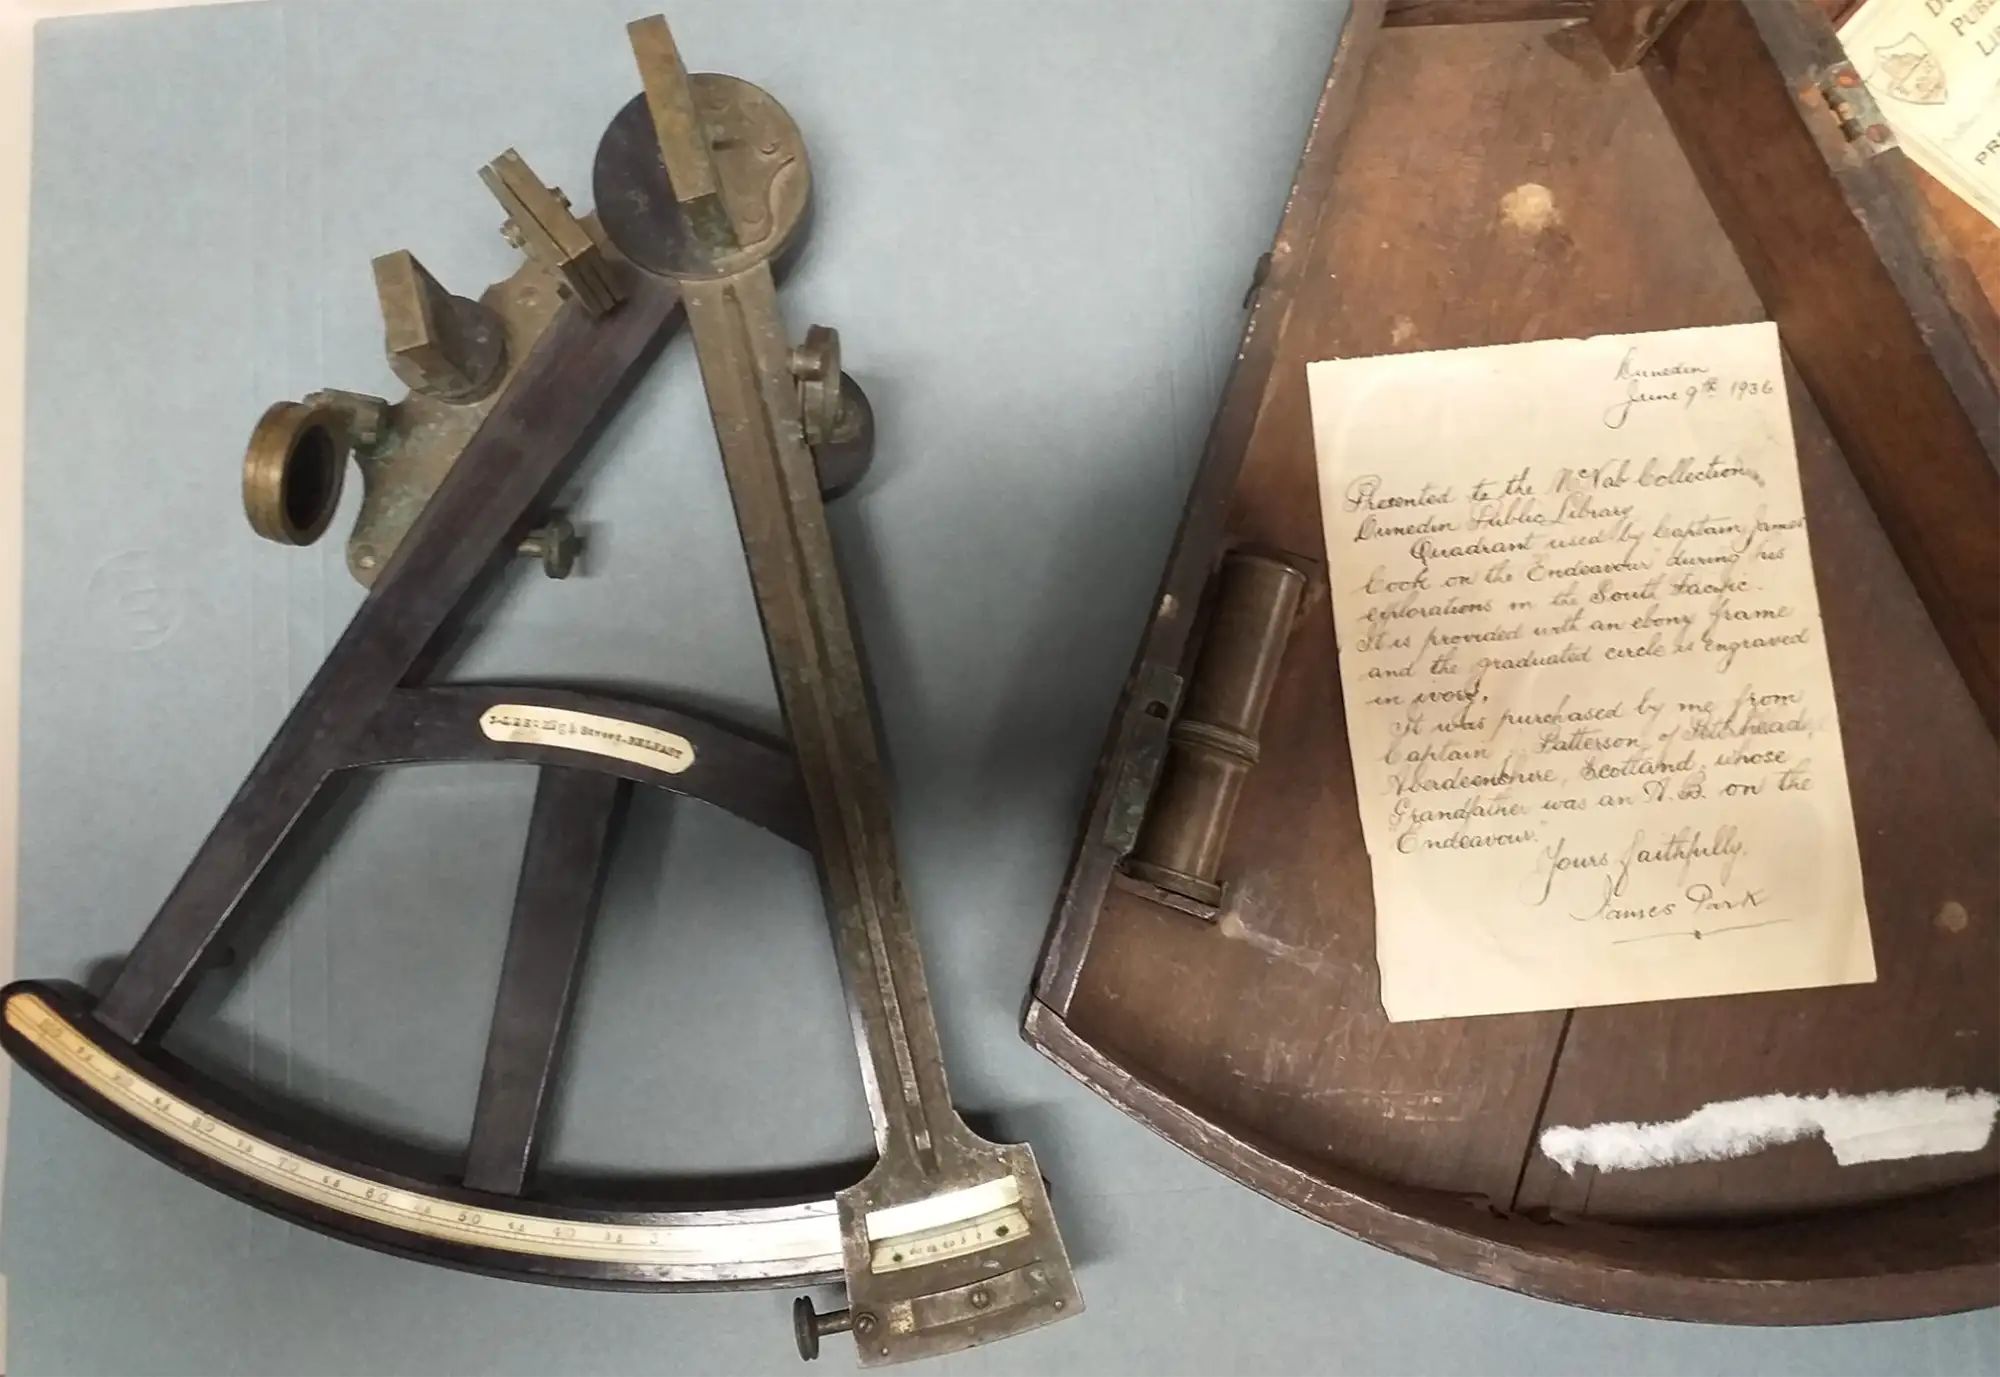 J. LEE High Street. BELFAST
100 95 90 85 80 75 70 65 60 55 50 45 40 35 3
DU
PUB
LI
PR
Dunedin
June 9th 1936
Presented to the McNab Collection,
Dunedin Public Library
Quadrant used by Captain James
Cook on the "Endeavour" during his
explorations in the South Pacific.
It is provided with an ebony frame
and the graduated circle is engraved
in ivory.
It was purchased by me from
Captain Patterson, of Peterhead,
Aberdeenshire, Scotland, whose
Grandfather was an A.B. on the
"Endeavour."
Yours faithfully,
James Park